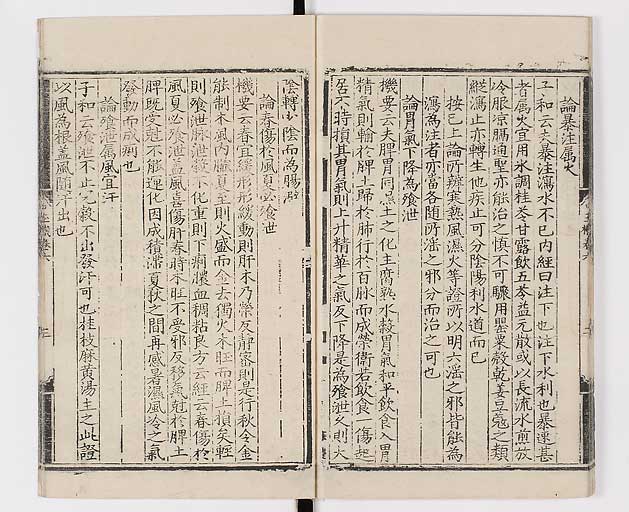 論暴注属火
子和云夫暴注瀉水不已内經曰注下也注下水利也暴速甚
者属火宜用水調桂苓甘露飲五苓益元散或以長流水煎放
冷服凉膈通聖亦能治之慎不可驟用罌粟殼乾姜豆蔻之類
縱瀉止亦轉生他疾止可分陰陽利水道而已
按已上論所辨寒熱風濕火等證所以明六淫之邪皆能為
瀉為注者亦當各随所淫之邪分而治之可也
論胃氣下降為飱泄
機要云夫脾胃同為土之化主腐熟水穀胃氣和平飲食入胃
精氣則輸於脾土歸於肺行於百脉而成榮衛若飲食一傷起
居不時損其胃氣則上升精華之氣反下降是為飱泄久則大
陰轉少陰而為腸澼
論春傷於風夏必飱泄
機要云春宜緩形形緩動則肝木乃榮反静密則是行秋令金
能制木風内臓夏至則火盛而金去獨火木旺而脾土損矣輕
則飱泄脉泄穀不化重則下痢膿血稠粘良方云經云春傷於
風夏必飱泄盖風喜傷肝春時木旺不受邪反移氣尅於脾土
脾既受尅不能運化因成積滯夏秋之間再感暑濕風冷之氣
發動而成痢也
論飱泄属風宜汗
子和云飱泄不止完穀不出發汗可也桂枝麻黄湯主之此證
以風為根盖風随汗出也